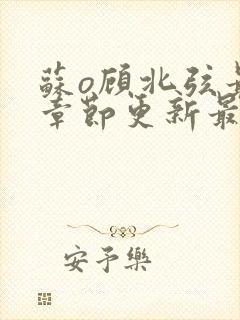 蘇o顾北弦最
章節更新最
安予樂